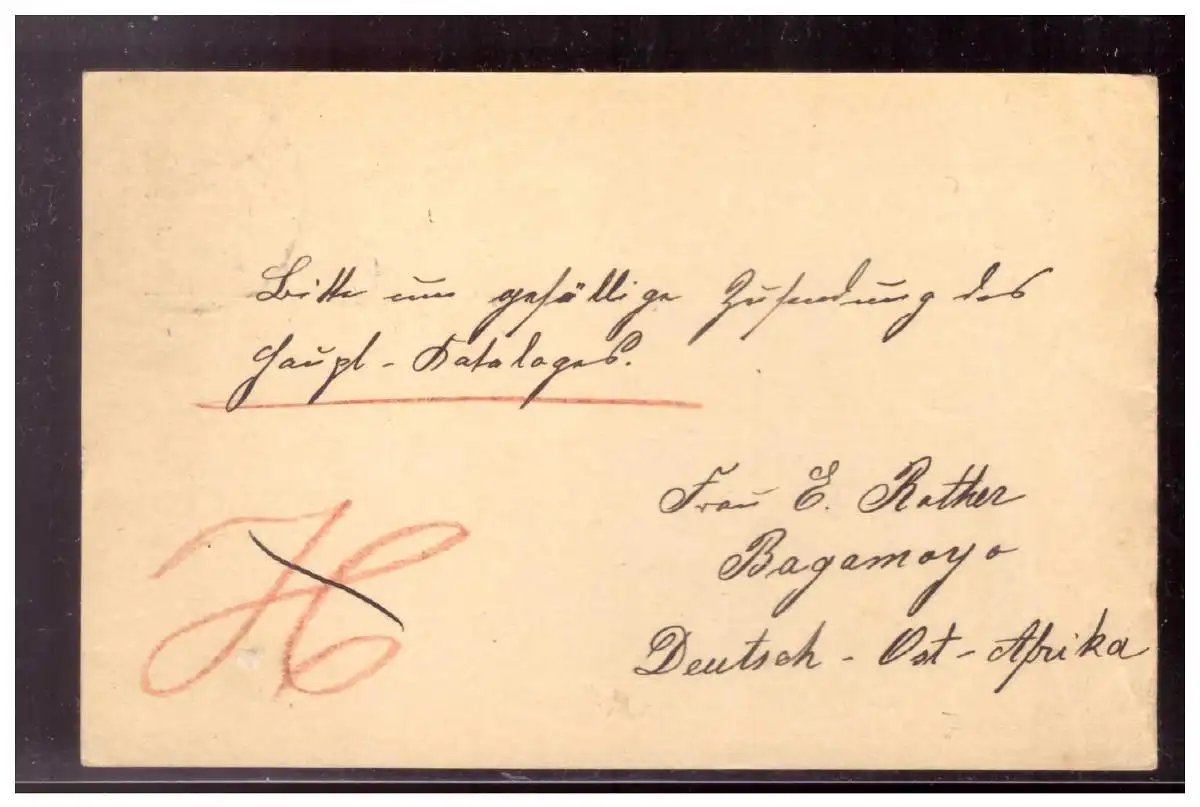 Bitte um gefällige Zusendung des
Haupt-Kataloges.
Frau E. Rother
Bagamoyo
Deutsch-Ost-Afrika
H